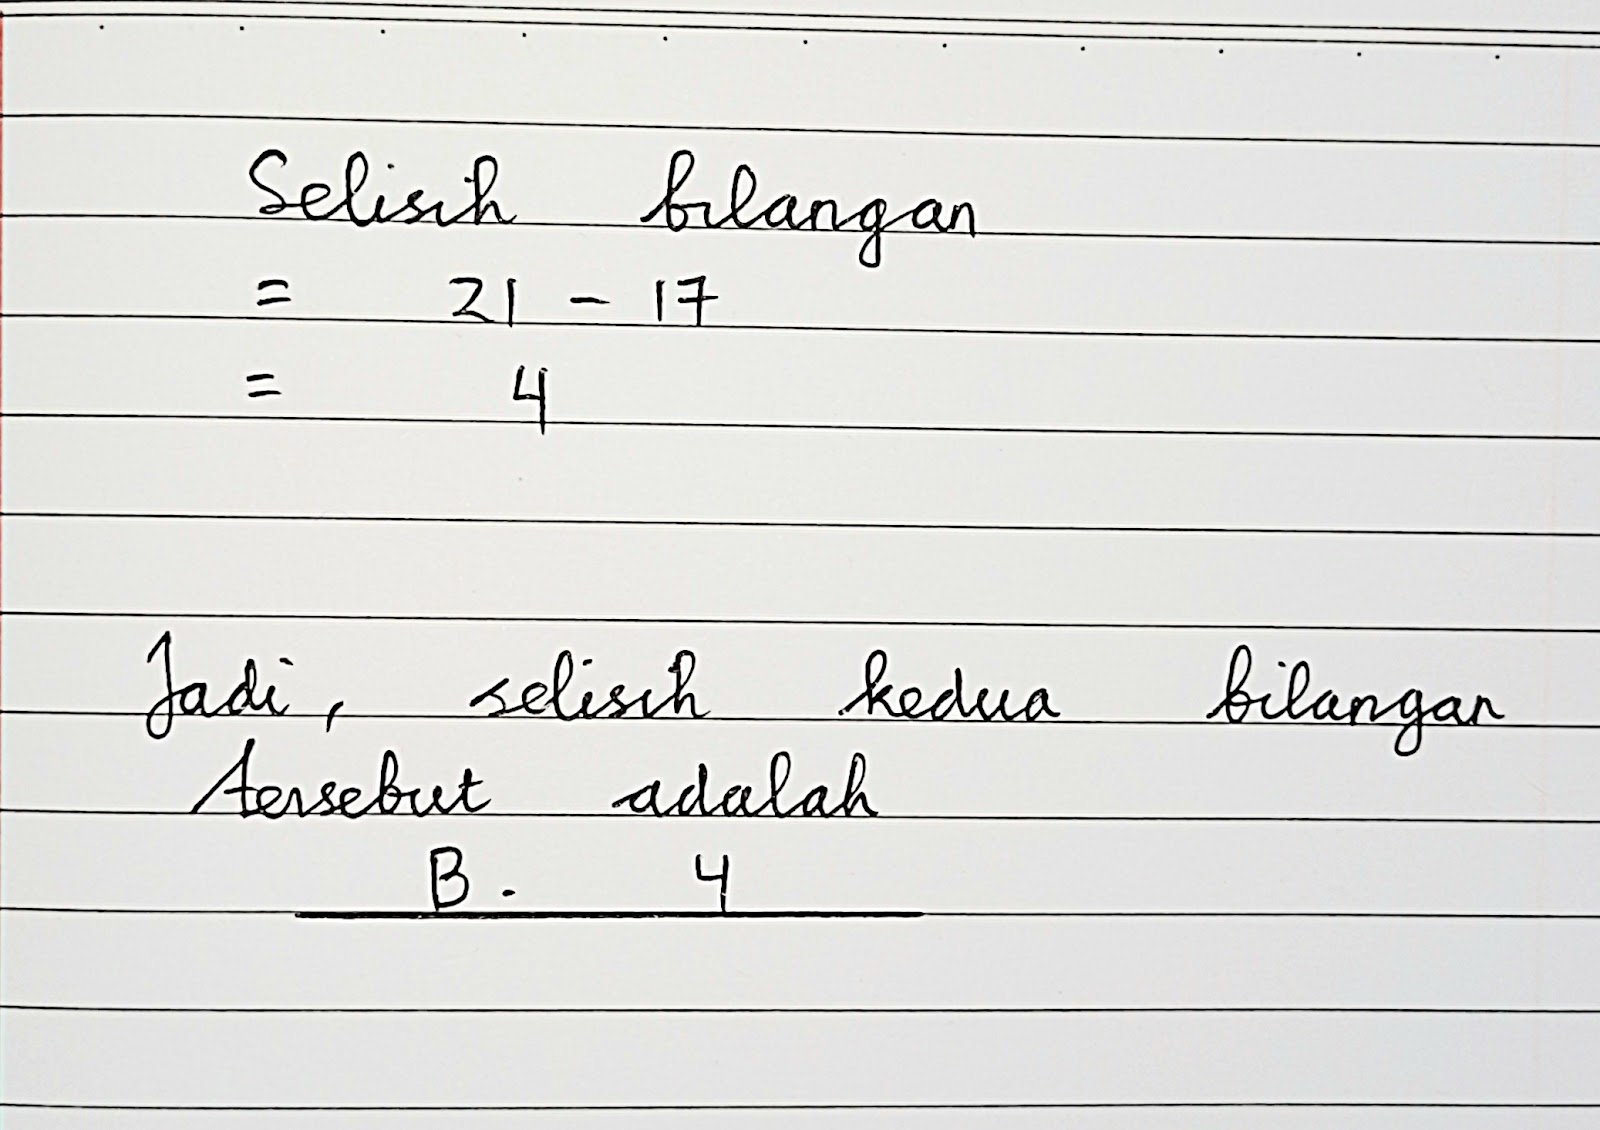 Selisih bilangan
= 21 - 17
= 4
Jadi, selisih kedua bilangan
tersebut adalah
B. 4